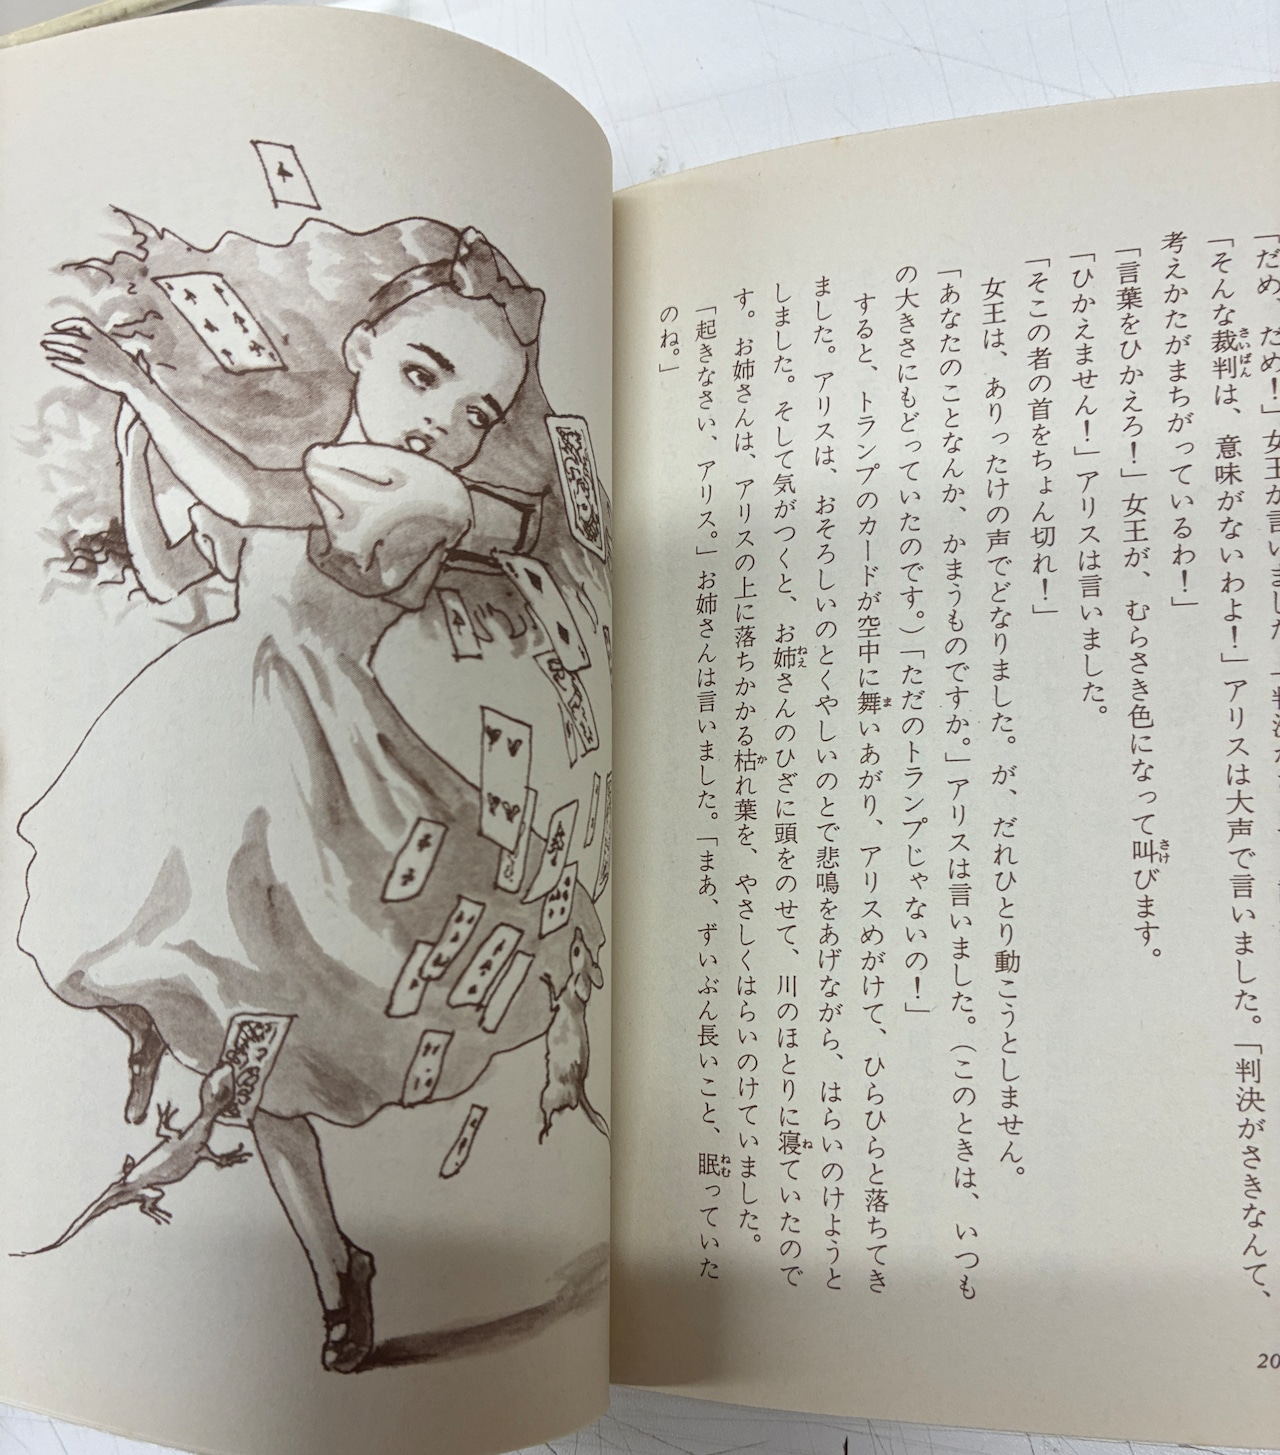 「だめ、だめ！」女王が言いました。「判決が
「そんな裁判は、意味がないわよ！」アリスは大声で言いました。「判決がさきなんて、
考えかたがまちがっているわ！」
「言葉をひかえろ！」女王が、むらさき色になって叫びます。
「ひかえません！」アリスは言いました。
「そこの者の首をちょん切れ！」
女王は、ありったけの声でどなりました。が、だれひとり動こうとしません。
「あなたのことなんか、かまうものですか。」アリスは言いました。（このときは、いつも
の大きさにもどっていたのです。）「ただのトランプじゃないの！」
すると、トランプのカードが空中に舞いあがり、アリスめがけて、ひらひらと落ちてき
ました。アリスは、おそろしいのとくやしいのとで悲鳴をあげながら、はらいのけようと
しました。そして気がつくと、お姉さんのひざに頭をのせて、川のほとりに寝ていたので
す。お姉さんは、アリスの上に落ちかかる枯れ葉を、やさしくはらいのけていました。
「起きなさい、アリス。」お姉さんは言いました。「まあ、ずいぶん長いこと、眠っていた
のね。」